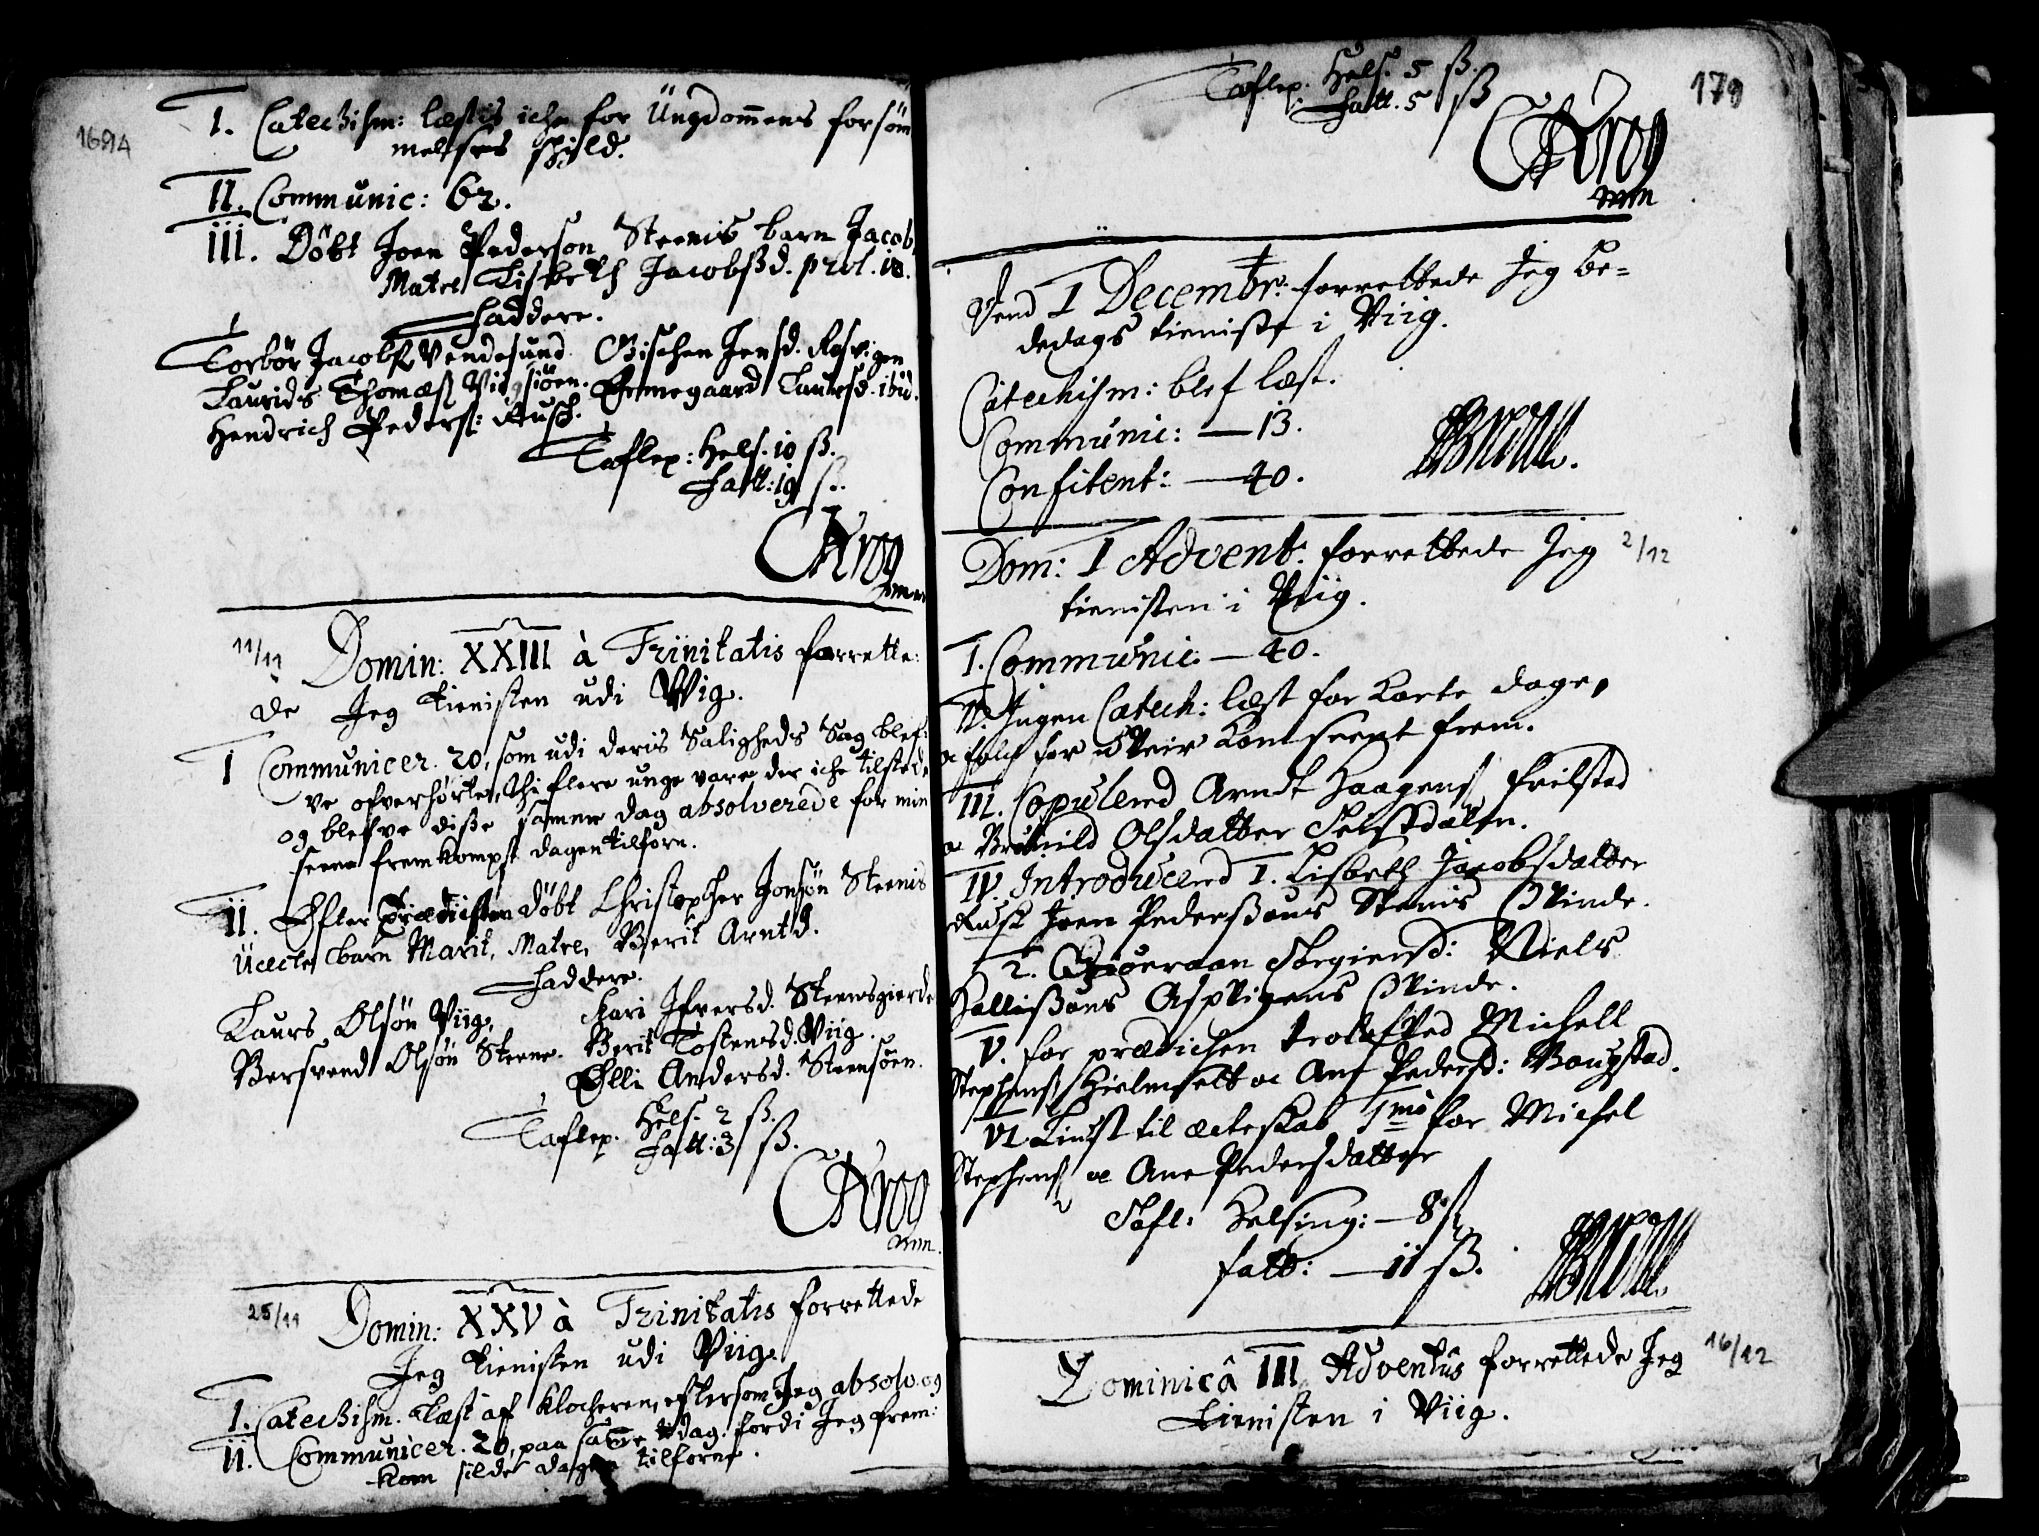 1694
I. Catechism: læstis iche for Ungdommens forsøm
melses skyld.
II. Communic: 62.
III. Döbt Joen Pederson Steenis barn Jacob,
Matre Lisbeth Jacobßd. prol. 10.
Faddere.
Torbör Jacobs Vendesund. Gischen Jensd. Rosvigen
Laurids Thomæs Viigsiöen. Ermegaard Laursd. ibid.
Hendrich Peders: Rusch.
Taflep: Hels. 10 ß.
Fatt: 19 ß.
CKrog
mm
11/11 Domin: XXIII à Trinitatis forrette-
de Jeg tienisten udi Wiig.
I Communicer. 20, som udi deris Saligheds Sag blef-
ve ofverhörte, thi flere unge vare der iche tilstede,
og blefve diße samme dag absolverede for min
seene fremkompst dagen tilforn.
II. Efter Prædichen döbt Christopher Jonsön Steenis
Uecte barn Marit, Matre, Berit Arntd.
Faddere.
Laurs Olsön Viig, Kari Ifversd. Steensgierde
Bersvend Olsön Steene. Berit Tostensd. Viig.
Olli Andersd. Steensöen.
Taflep. Hels: 2 ß.
Fatt: 3 ß.
CKrog
mm.
25/11 Domin: XXV à Trinitatis forrettede
Jeg tienisten udi Viig.
I. Catechism. læst af Klocheren, eftersom Jeg absolv. og
II. Communicer. 20, paa samme dag. fordi Jeg frem-
kom silde dagen tilforne.
179
Taflep. Hels. 5 ß.
Fatt. 5 ß
CKrog
mm
Dend 1 Decembr: forrettede Jeg be-
dedags tieniste i Viig.
Catechism: blef læst.
Communic: — 13.
Confitent: — 40.
Dom: I Advent: forrettede Jeg 2/12
tienisten i Viig.
I. Communic. — 40.
II. Ingen Catech: læst for korte dage,
oc folch for Veir kom seent frem.
III. Copulerid Arndt Haagens frilsted
oc Brunild Olsdatter Selstdalen.
IV. Introducerid 1. Lisbeth Jacobsdatter
Rusk Joen Pederßøns Steenis Qvinde.
2. Giøeraan Jørgensd: Niels
Hallißøns Aspvigens Qvinde.
V. for prædichen trolofved Michell
Stephens Hielmselt oc Ane Pedersd: Vougstad.
VI Liust til ecteskab 1mo for Michel
Stephens oc Ane Pedersdatter
Tafl: Helsing: — 8 ß
fatt: — 11 ß.
Dominicâ III Adventus forrettede Jeg 16/12
tienisten i Viig.